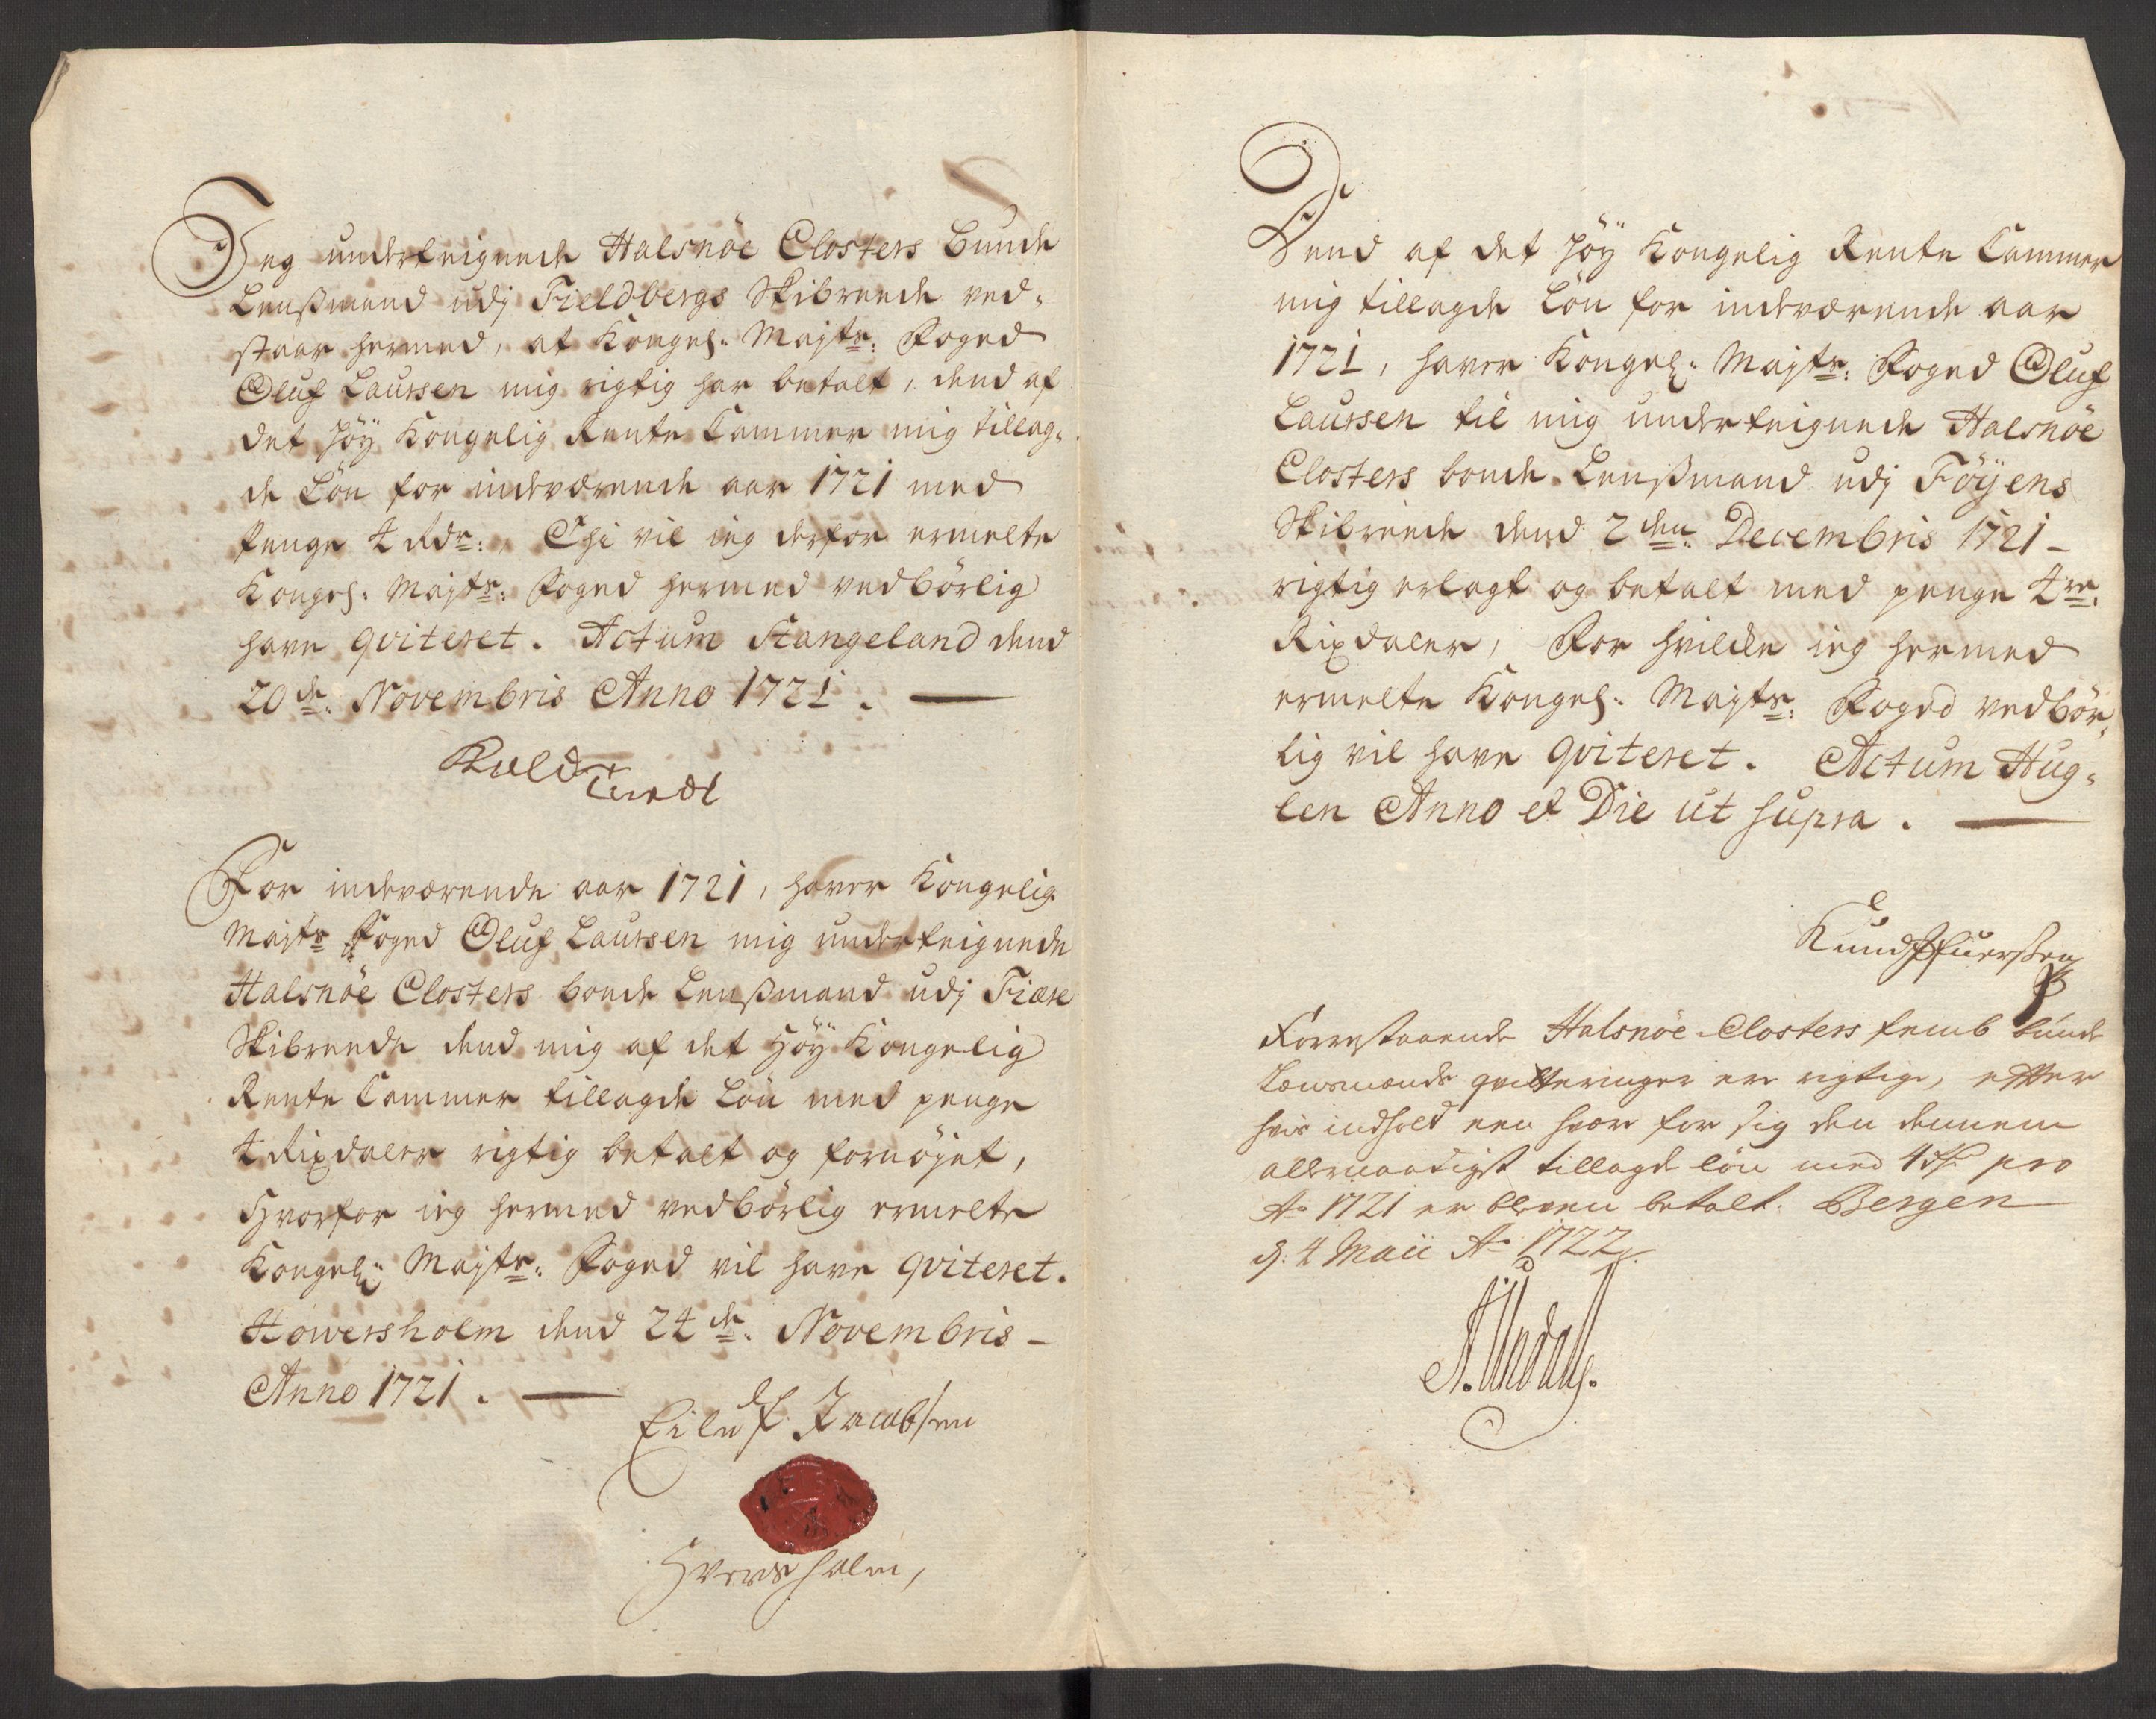 Jeg underteignede Halsnöe Closters bunde
Lensmand udj Fieldbergs Skibreede ved-
staar hermed, at Kongel: Majts: Foged
Oluf Laursen mig rigtig har betalt, dend af
det höy Kongelig Rente Cammer mig tillag-
de Lön for indeværende aar 1721 med
penge 4 Rdr:, Thi vil ieg derfor ermelte
Kongel: Majts: Foged hermed vedbörlig
have qviteret. Actum Stangeland dend
20de: Novembris Anno 1721.
For indeværende aar 1721, haver Kongelig
Majts Foged Oluf Laursen mig underteignede
Halsnöe Closters bonde Lensmand udj Fiære
Skibreede dend mig af det Höy Kongelig
Rente Cammer tillagde Lön med penge
4 Rixdaler rigtig betalt og fornöjet,
Hvorfor ieg hermed vedbörlig ermelte
Kongel: Majts: Foged vil have qviteret.
Howersholm dend 24de: Novembris
Anno 1721.
Eiluf Jacobsen
Dend af det höy Kongelig Rente Cammer
mig tillagde Lön for indeværende aar
1721, haver Kongel: Majts: Foged Oluf
Laursen til mig underteignede Halsnöe
Closters bonde Lensmand udj Föyens
Skibreede dend 2den: Decembris 1721
rigtig erlagt og betalt med penge 4re:
Rixdaler, For hvilcke ieg hermed
ermelte Kongel: Majts: Foged vedbör-
lig vil have qviteret. Actum Hug-
len Anno et Die ut supra.
Forrestaaende Halsnöe Closters femb bunde
Lænsmænds qvitteringer ere rigtige, efter
hvis indhold een hver for sig den dennem
allernaadigst tillagde lön med 4 rdr pro
Ao 1721 er bleven betalt. Bergen
d: 4 Maii Ao 1722